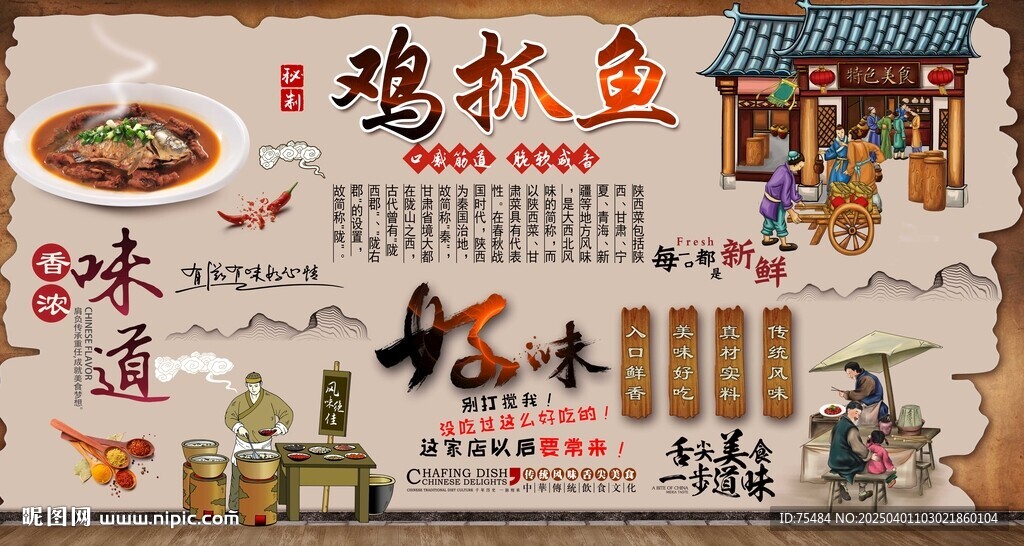 秘制
鸡抓鱼
口感筋道 脆软咸香
特色美食
陕西菜包括陕
西、甘肃、宁
夏、青海、新
疆等地方风味
,是大西北风
味的简称,而
以陕西菜、甘
肃菜具有代表
性。在春秋战
国时代,陕西
为秦国治地,
故简称“秦”,
甘肃省境大都
在陇山之西,
古代曾有“陇
西郡”、“陇右
郡”的设置,
故简称“陇”。
Fresh
每一口都是新鲜
香浓
味道
CHINESE FLAVOR
肩负传承重任,成就美食梦想。
有滋有味好心情
好味
入口鲜香
美味好吃
真材实料
传统风味
风味绝佳
别打搅我!
没吃过这么好吃的!
这家店以后要常来!
CHAFING DISH
CHINESE DELIGHTS
传统风味舌尖美食
中華傳統飲食文化
CHINESE TRADITIONAL DIET CULTURE
舌尖美食
一步道味
A BITE OF CHINA
昵图网 www.nipic.com
ID:75484 NO:20250401103021860104